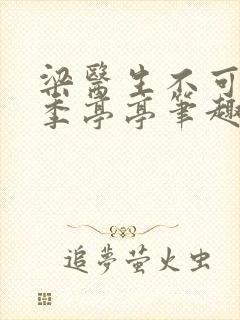 梁醫生不可
季亭亭筆趣
追夢萤火虫